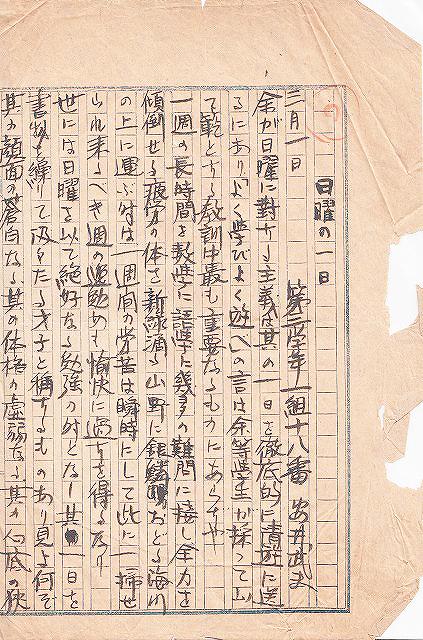 日曜の一日
第二学年一組十八番 安井武夫
三月一日
余が日曜に對する主義は其の一日を徹底的に清遊に送
るにあり「よく学びよく遊べ」の言は余等学生が採つて以
て範とする教訓中最も重要なるものにあらずや
一週の長時間を数学に語学に幾多の難問に接し余力を
傾倒せる疲労の体を新緑滴る山野に銀鱗おどる海川
の上に運ぶ時は一週間の労苦は瞬時にして此に一掃せ
られ来るべき週の運動めも愉快に過すを得るなり
世には日曜を以て絶好なる勉強の時となし其一日を
書物を繙りて及々たる才子と称するものあり見よ何ぞ
其の顔面の蒼白なる其の体格の虚弱なる其の心底の狭